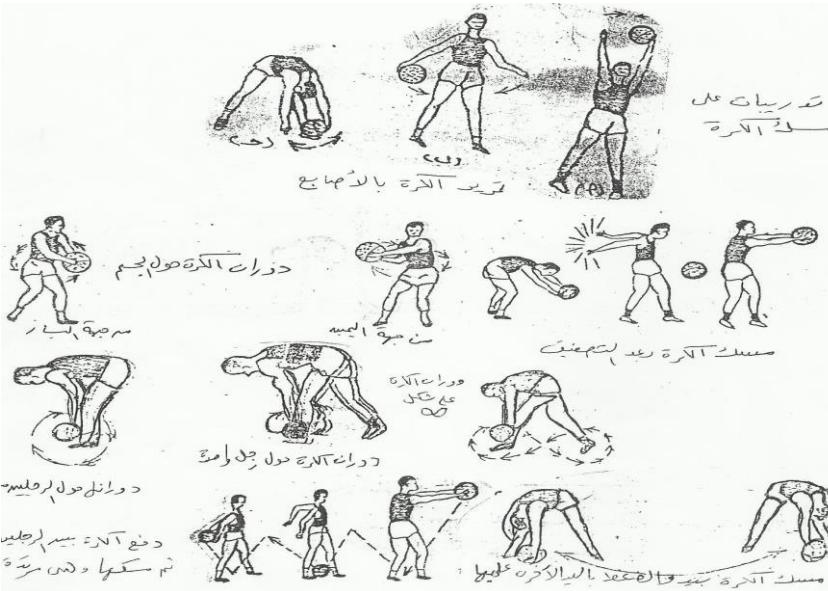 تدريبات على
مسك الكرة
(جـ)
(ب)
(أ)
تمرير الكرة بالأصابع
دوران الكرة حول الجسم
من جهة اليسار
من جهة اليمين
مسك الكرة بعد التصفيق
دوران الكرة
على شكل
دوران الكرة حول رجل واحدة
دوران حول الرجلين
دفع الكرة بين الرجلين
ثم مسكها وهي مرتدة
مسك الكرة باليد الأخرى عليها